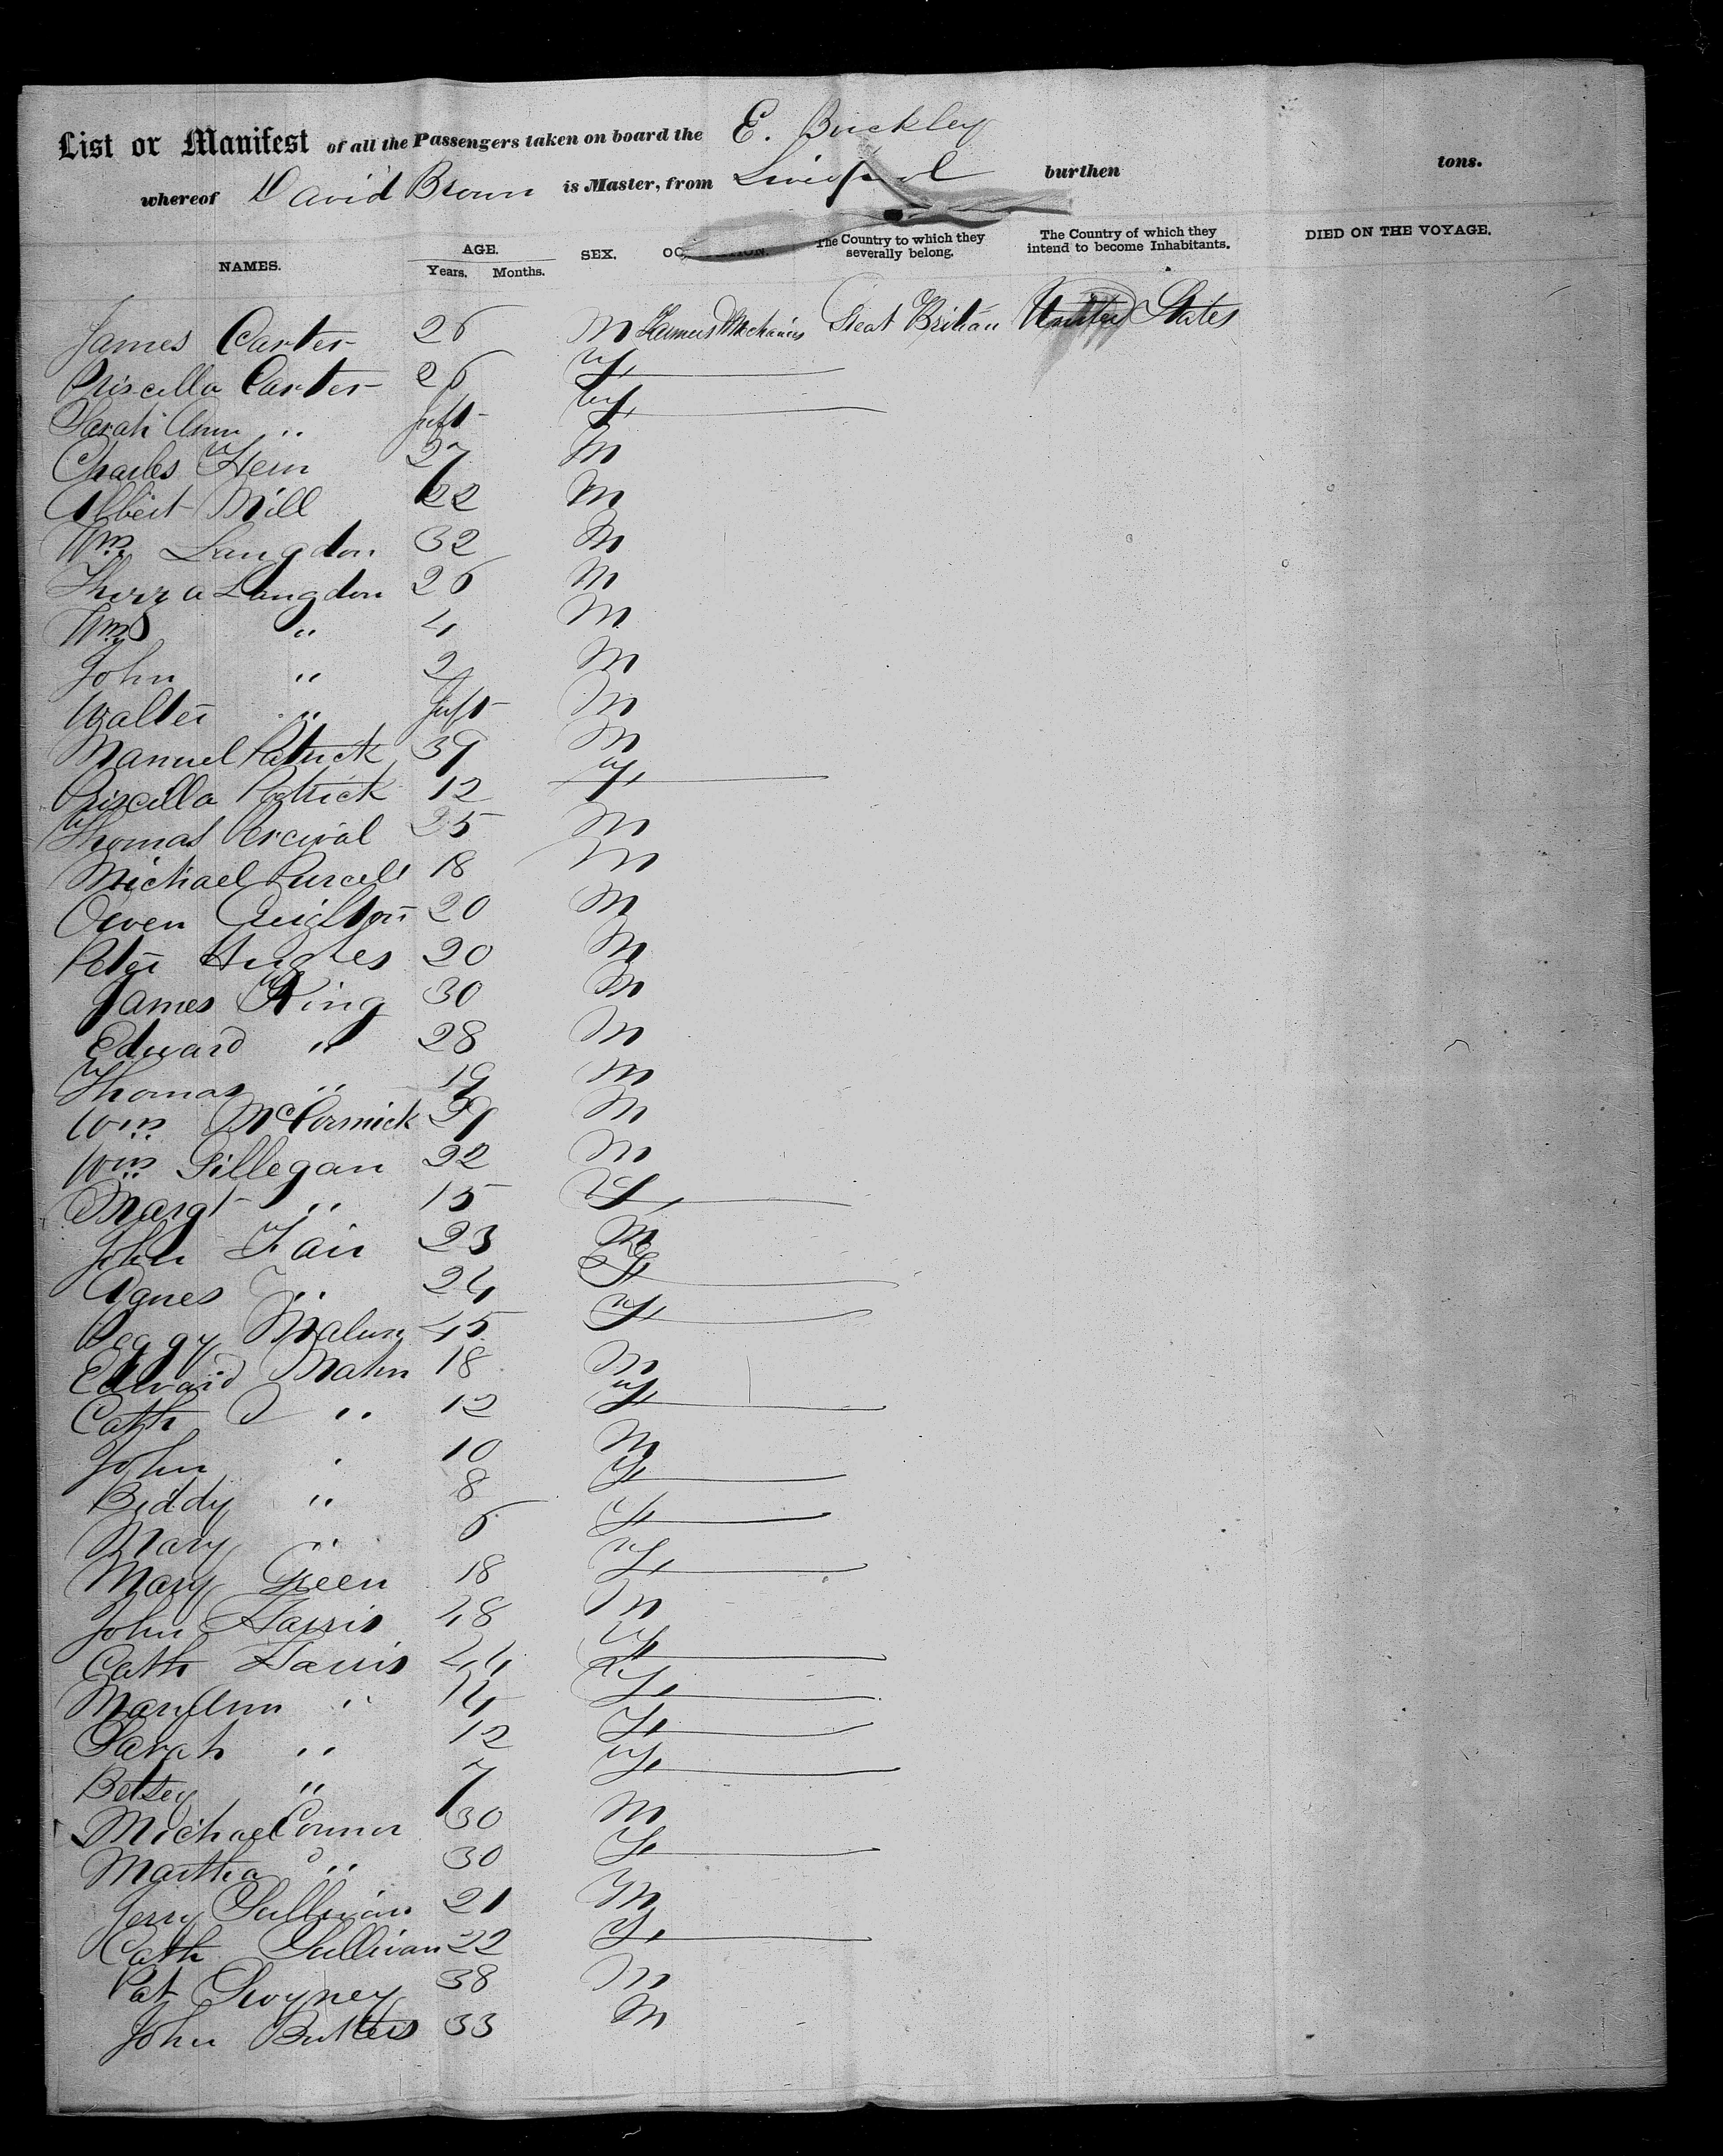 List or Manifest of all the Passengers taken on board the E. Buckley
whereof David Brown is Master, from Liverpool burthen tons.
NAMES. AGE. Years. Months. SEX. OC TION. The Country to which they severally belong. The Country of which they intend to become Inhabitants. DIED ON THE VOYAGE.
James Carter 26 M Farmers & Mechanics Great Britian United States
Priscilla Carter 26 F
Sarah Ann " Inft F
Charles 27 M
Albert Mill 22 M
Wm Langdon 32 M
Thirza Langdon 26 M
Wm " 4 M
John " 2 M
Walter " Inft M
Manuel Patrick 39 M
Priscilla Patrick 12 F
Thomas Percival 25 M
Michael Purcell 18 M
Owen 20 M
Peter Hughes 20 M
James King 30 M
Edward " 28 M
Thomas " 19 M
Wm McCormick 29 M
Wm Gillegan 22 M
Margt " 15 F
John Fair 23 M
Agnes " 24 F
Peggy 45 F
Edward Mahn 18 M
Cath " 12 F
John " 10 M
Biddy " 8 F
Mary " 6 F
Mary Green 18 F
John Harris 48 M
Cath Harris 44 F
Mary Ann " 14 F
Sarah " 12 F
Betsey " 7 F
Michael Connor 30 M
Martha " 30 F
Jerry Sullivan 21 M
Cath Sullivan 22 F
Pat Swyney 38 M
John Butters 33 M